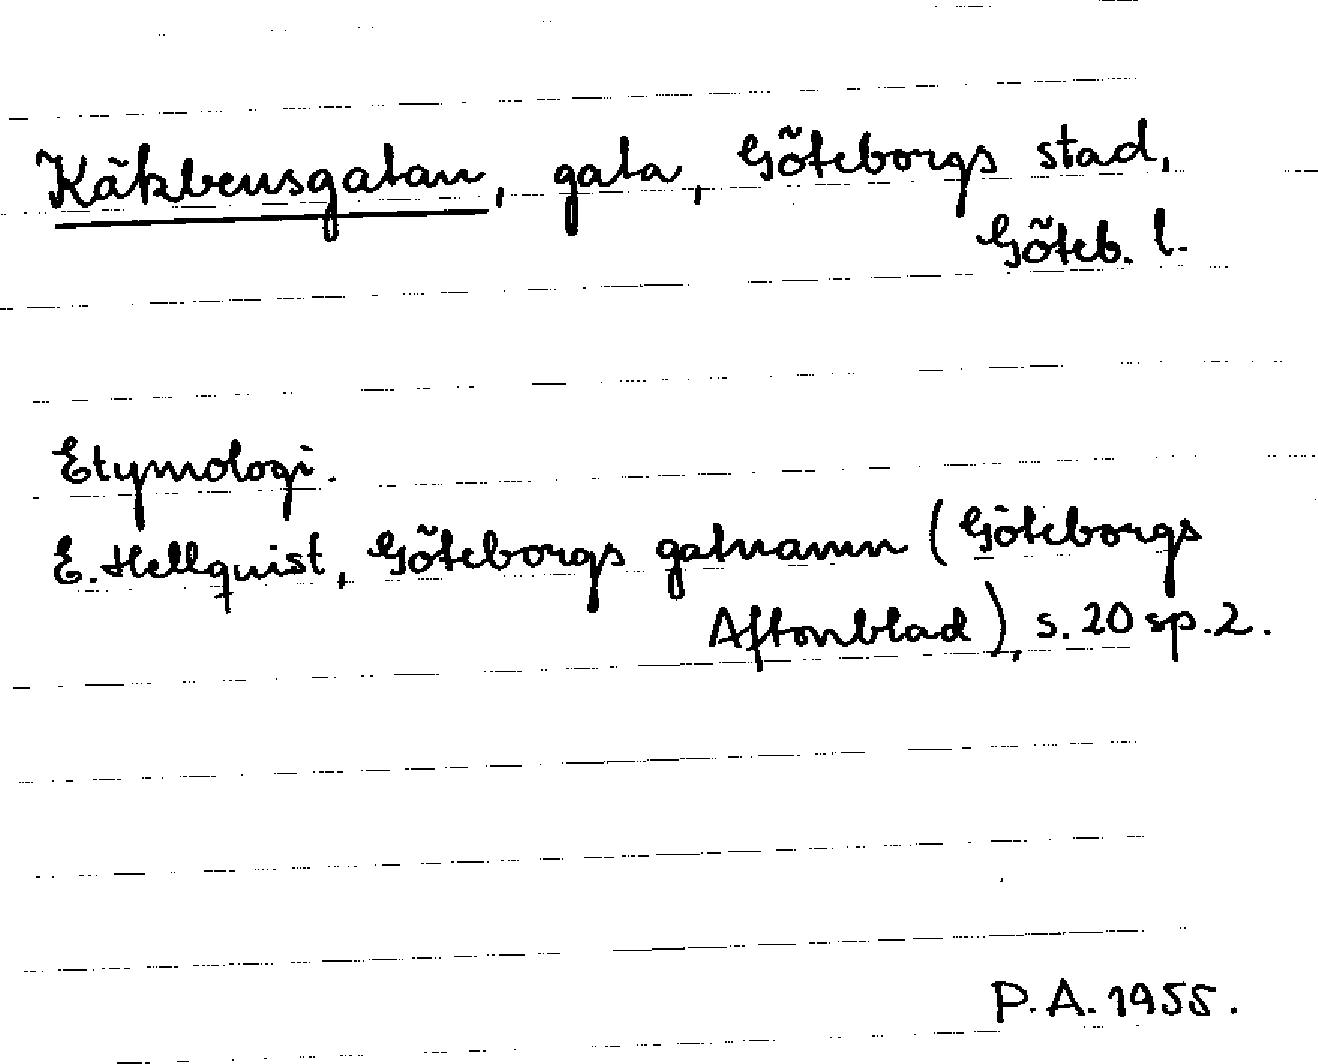 Käkbensgatan, gata, Göteborgs stad,
Göteb. l.
Etymologi.
E. Hellquist, Göteborgs gatnamn (Göteborgs
Aftonblad), s. 20 sp. 2.
P. A. 1955.